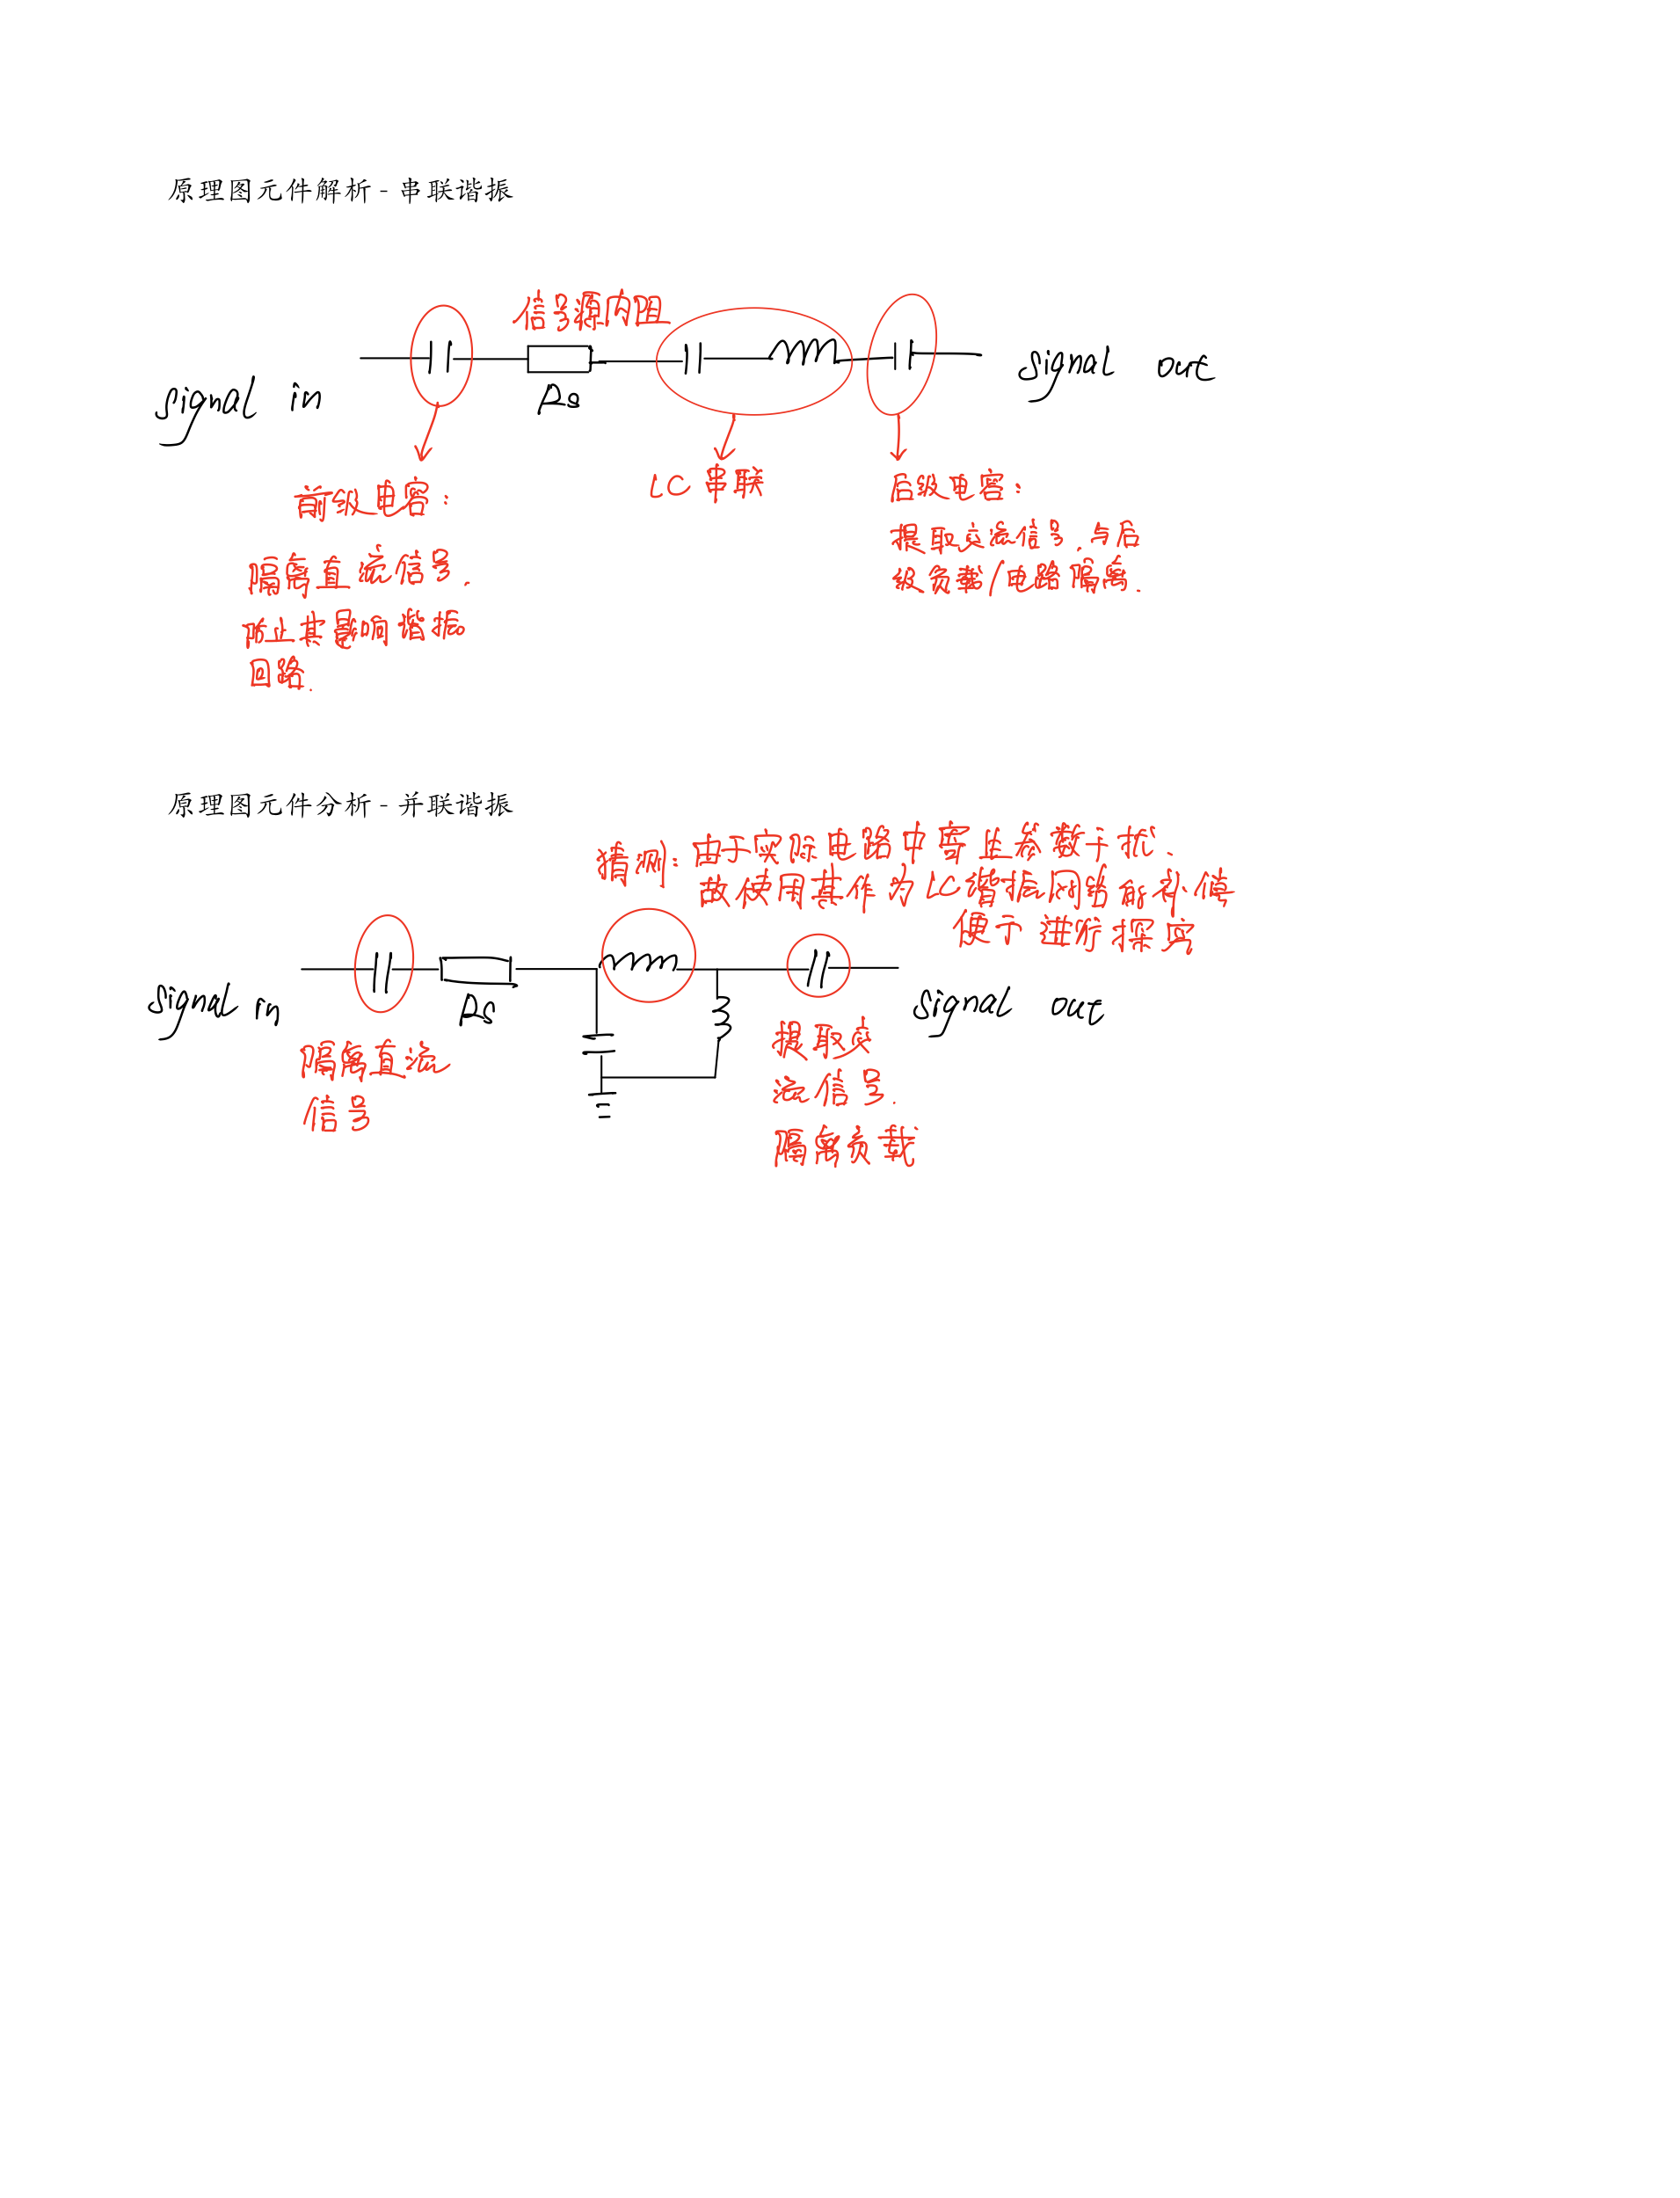 原理图元件解析 - 串联谐振
信号源内阻
signal in
Rs
signal out
前级电容：
隔离直流信号.
防止其影响谐振
回路.
LC 串联
后级电容：
提取交流信号.与后
级负载/电路隔离.
原理图元件分析 - 并联谐振
猜测：由于实际电路中寄生参数干扰.
故使用其作为LC谐振网络的补偿
便于进行探究
signal in
Rs
signal out
隔离直流
信号
提取交
流信号.
隔离负载